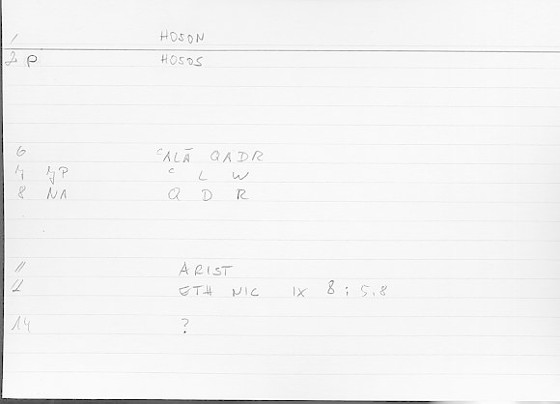 1 HOSON
2 P HOSOS
6 ʿALĀ QADR
ʿ L W
8 NA Q D R
11 ARIST
ETH NIC IX 8; 5.8
14 ?